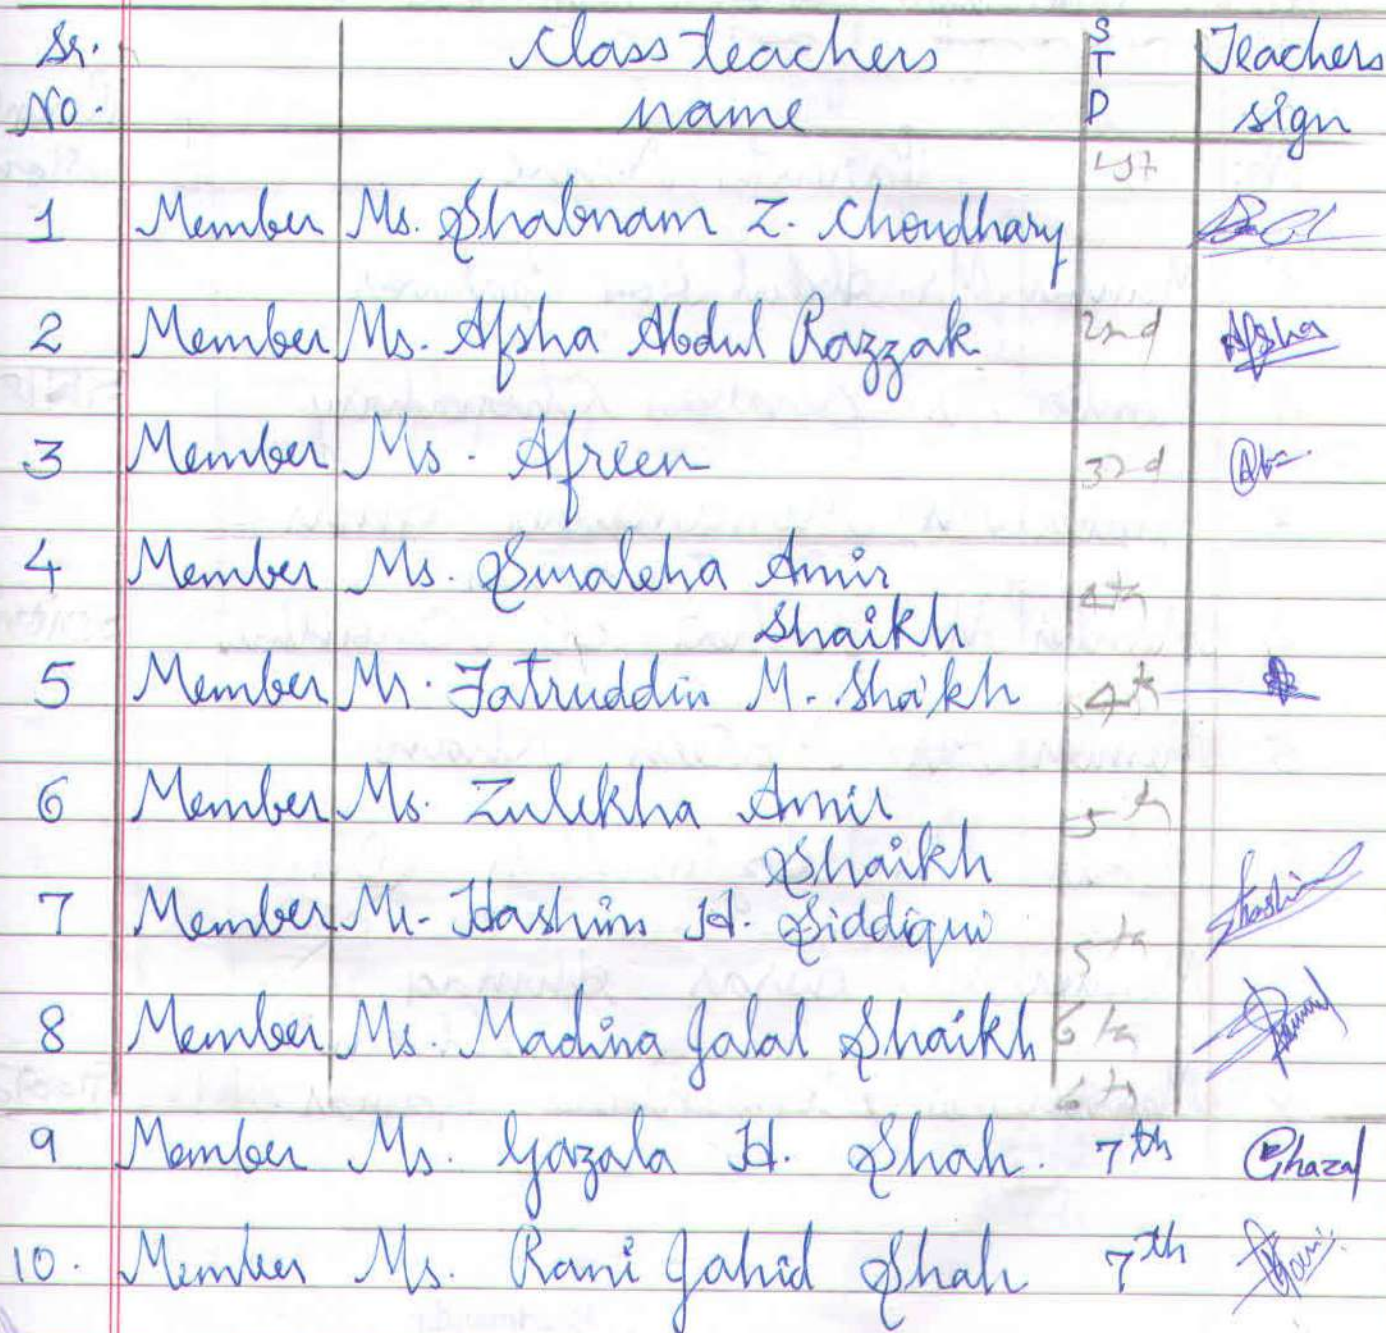 Sr. Class teachers STD Teachers
No. name sign
1st
1 Member Ms. Shabnam Z. Choudhary
2 Member Ms. Afsha Abdul Razzak 2nd Afsha
3 Member Ms. Afreen 3rd
4 Member Ms. Sumaleha Amir 4th
Shaikh
5 Member Mr. Fatruddin M. Shaikh 4th
6 Member Ms. Zulekha Amir 5th
Shaikh
7 Member Mr. Hashim H. Siddiqui 5th Hashim
8 Member Ms. Madina Jalal Shaikh 6th
6th
9 Member Ms. Gazala H. Shah. 7th Ghazal
10. Member Ms. Rani Jahid Shah 7th Rani